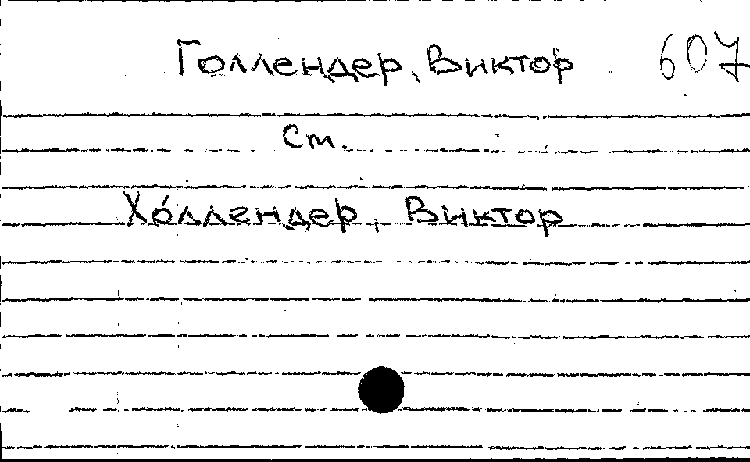 Голлендер, Виктор 607
Ст.
Хóллендер, Виктор